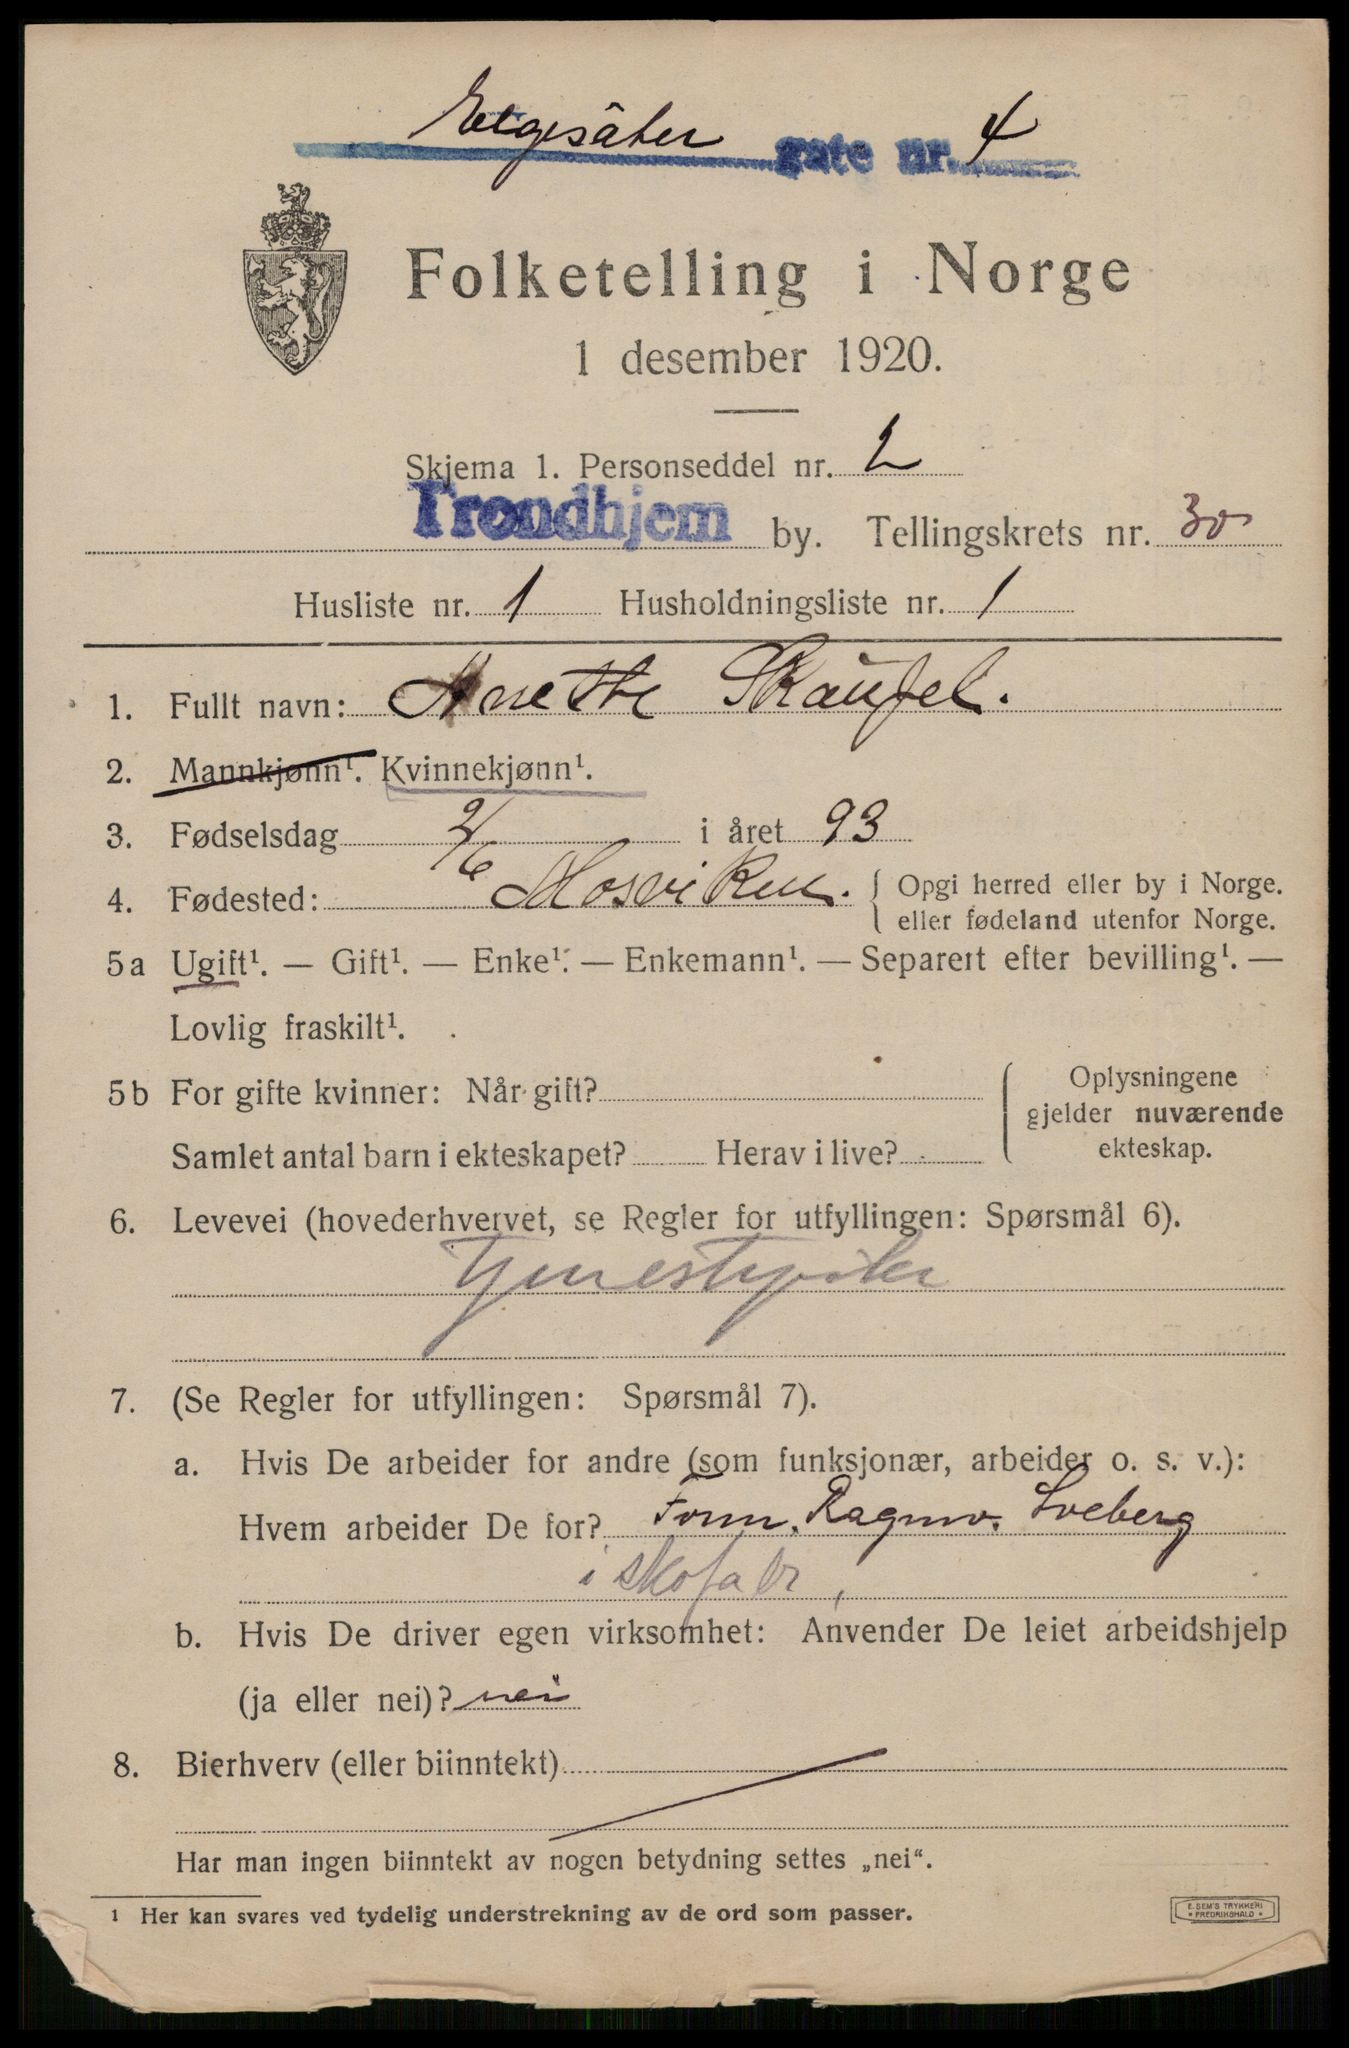 Elgesæter gate nr. 4
Folketelling i Norge
1 desember 1920.
Skjema 1. Personseddel nr. 2
Trondhjem by. Tellingskrets nr. 30
Husliste nr. 1 Husholdningsliste nr. 1
1. Fullt navn: Anette Skaufel.
2. Mannkjønn¹. Kvinnekjønn¹.
3. Fødselsdag 2/6 i året 93
4. Fødested: Mosviken. { Opgi herred eller by i Norge.
eller fødeland utenfor Norge.
5a Ugift¹. — Gift¹. — Enke¹. — Enkemann¹. — Separert efter bevilling¹. —
Lovlig fraskilt¹.
5b For gifte kvinner: Når gift?
Samlet antal barn i ekteskapet? Herav i live?
Oplysningene
gjelder nuværende
ekteskap.
6. Levevei (hovederhvervet, se Regler for utfyllingen: Spørsmål 6).
7. (Se Regler for utfyllingen: Spørsmål 7).
a. Hvis De arbeider for andre (som funksjonær, arbeider o. s. v.):
Hvem arbeider De for? Ragnv. Loeberg
i skofabr,
b. Hvis De driver egen virksomhet: Anvender De leiet arbeidshjelp
(ja eller nei)? nei
8. Bierhverv (eller biinntekt)
Har man ingen biinntekt av nogen betydning settes „nei“.
¹ Her kan svares ved tydelig understrekning av de ord som passer.
E. SEM'S TRYKKERI
* FREDRIKSHALD *